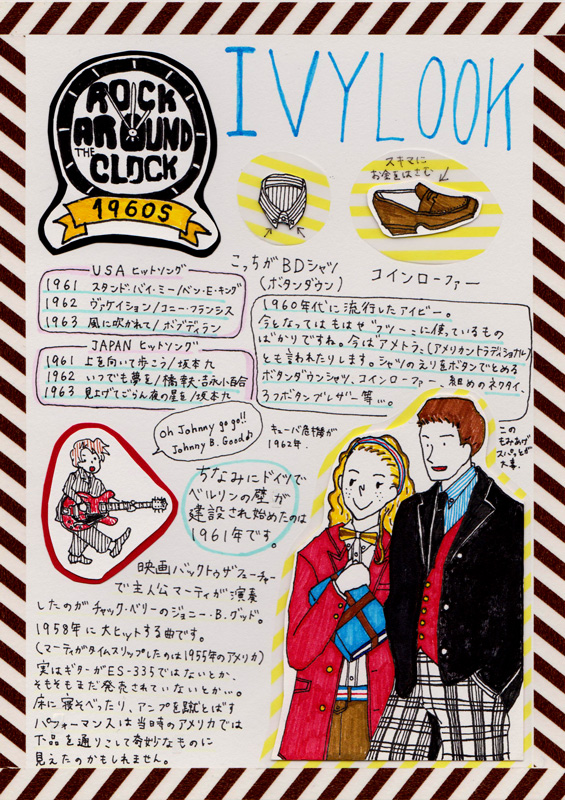 ROCK
AROUND
THE
CLOCK
1960S
IVYLOOK
スキマに
お金をはさむ
こっちがBDシャツ
(ボタンダウン)
コインローファー
USA ヒットソング
1961 スタンド・バイ・ミー/ベン・E・キング
1962 ヴァケイション/コニー・フランシス
1963 風に吹かれて/ボブディラン
JAPAN ヒットソング
1961 上を向いて歩こう/坂本九
1962 いつでも夢を/橋幸夫・吉永小百合
1963 見上げてごらん夜の星を/坂本九
1960年代に流行したアイビー。
今となってはもはやフツーに使っているもの
ばかりですね。今はアメトラ(アメリカントラディショナル)
とも言われたりします。シャツのえりをボタンでとめる
ボタンダウンシャツ、コインローファー、細めのネクタイ、
3つボタンブレザー等…。
Oh Johnny go go!!
Johnny B. Good♪
キューバ危機が
1962年。
このもみあげ
スパッとが
大事。
ちなみにドイツで
ベルリンの壁が
建設され始めたのは
1961年です。
映画バックトゥザフューチャー
で主人公マーティが演奏
したのがチャック・ベリーのジョニー・B.グッド。
1958年に大ヒットする曲です。
(マーティがタイムスリップしたのは1955年のアメリカ)
実はギターがES-335ではないとか、
そもそもまだ発売されていないとか…。
床に寝そべったり、アンプを蹴とばす
パフォーマンスは当時のアメリカでは
下品を通りこして奇妙なものに
見えたのかもしれません。